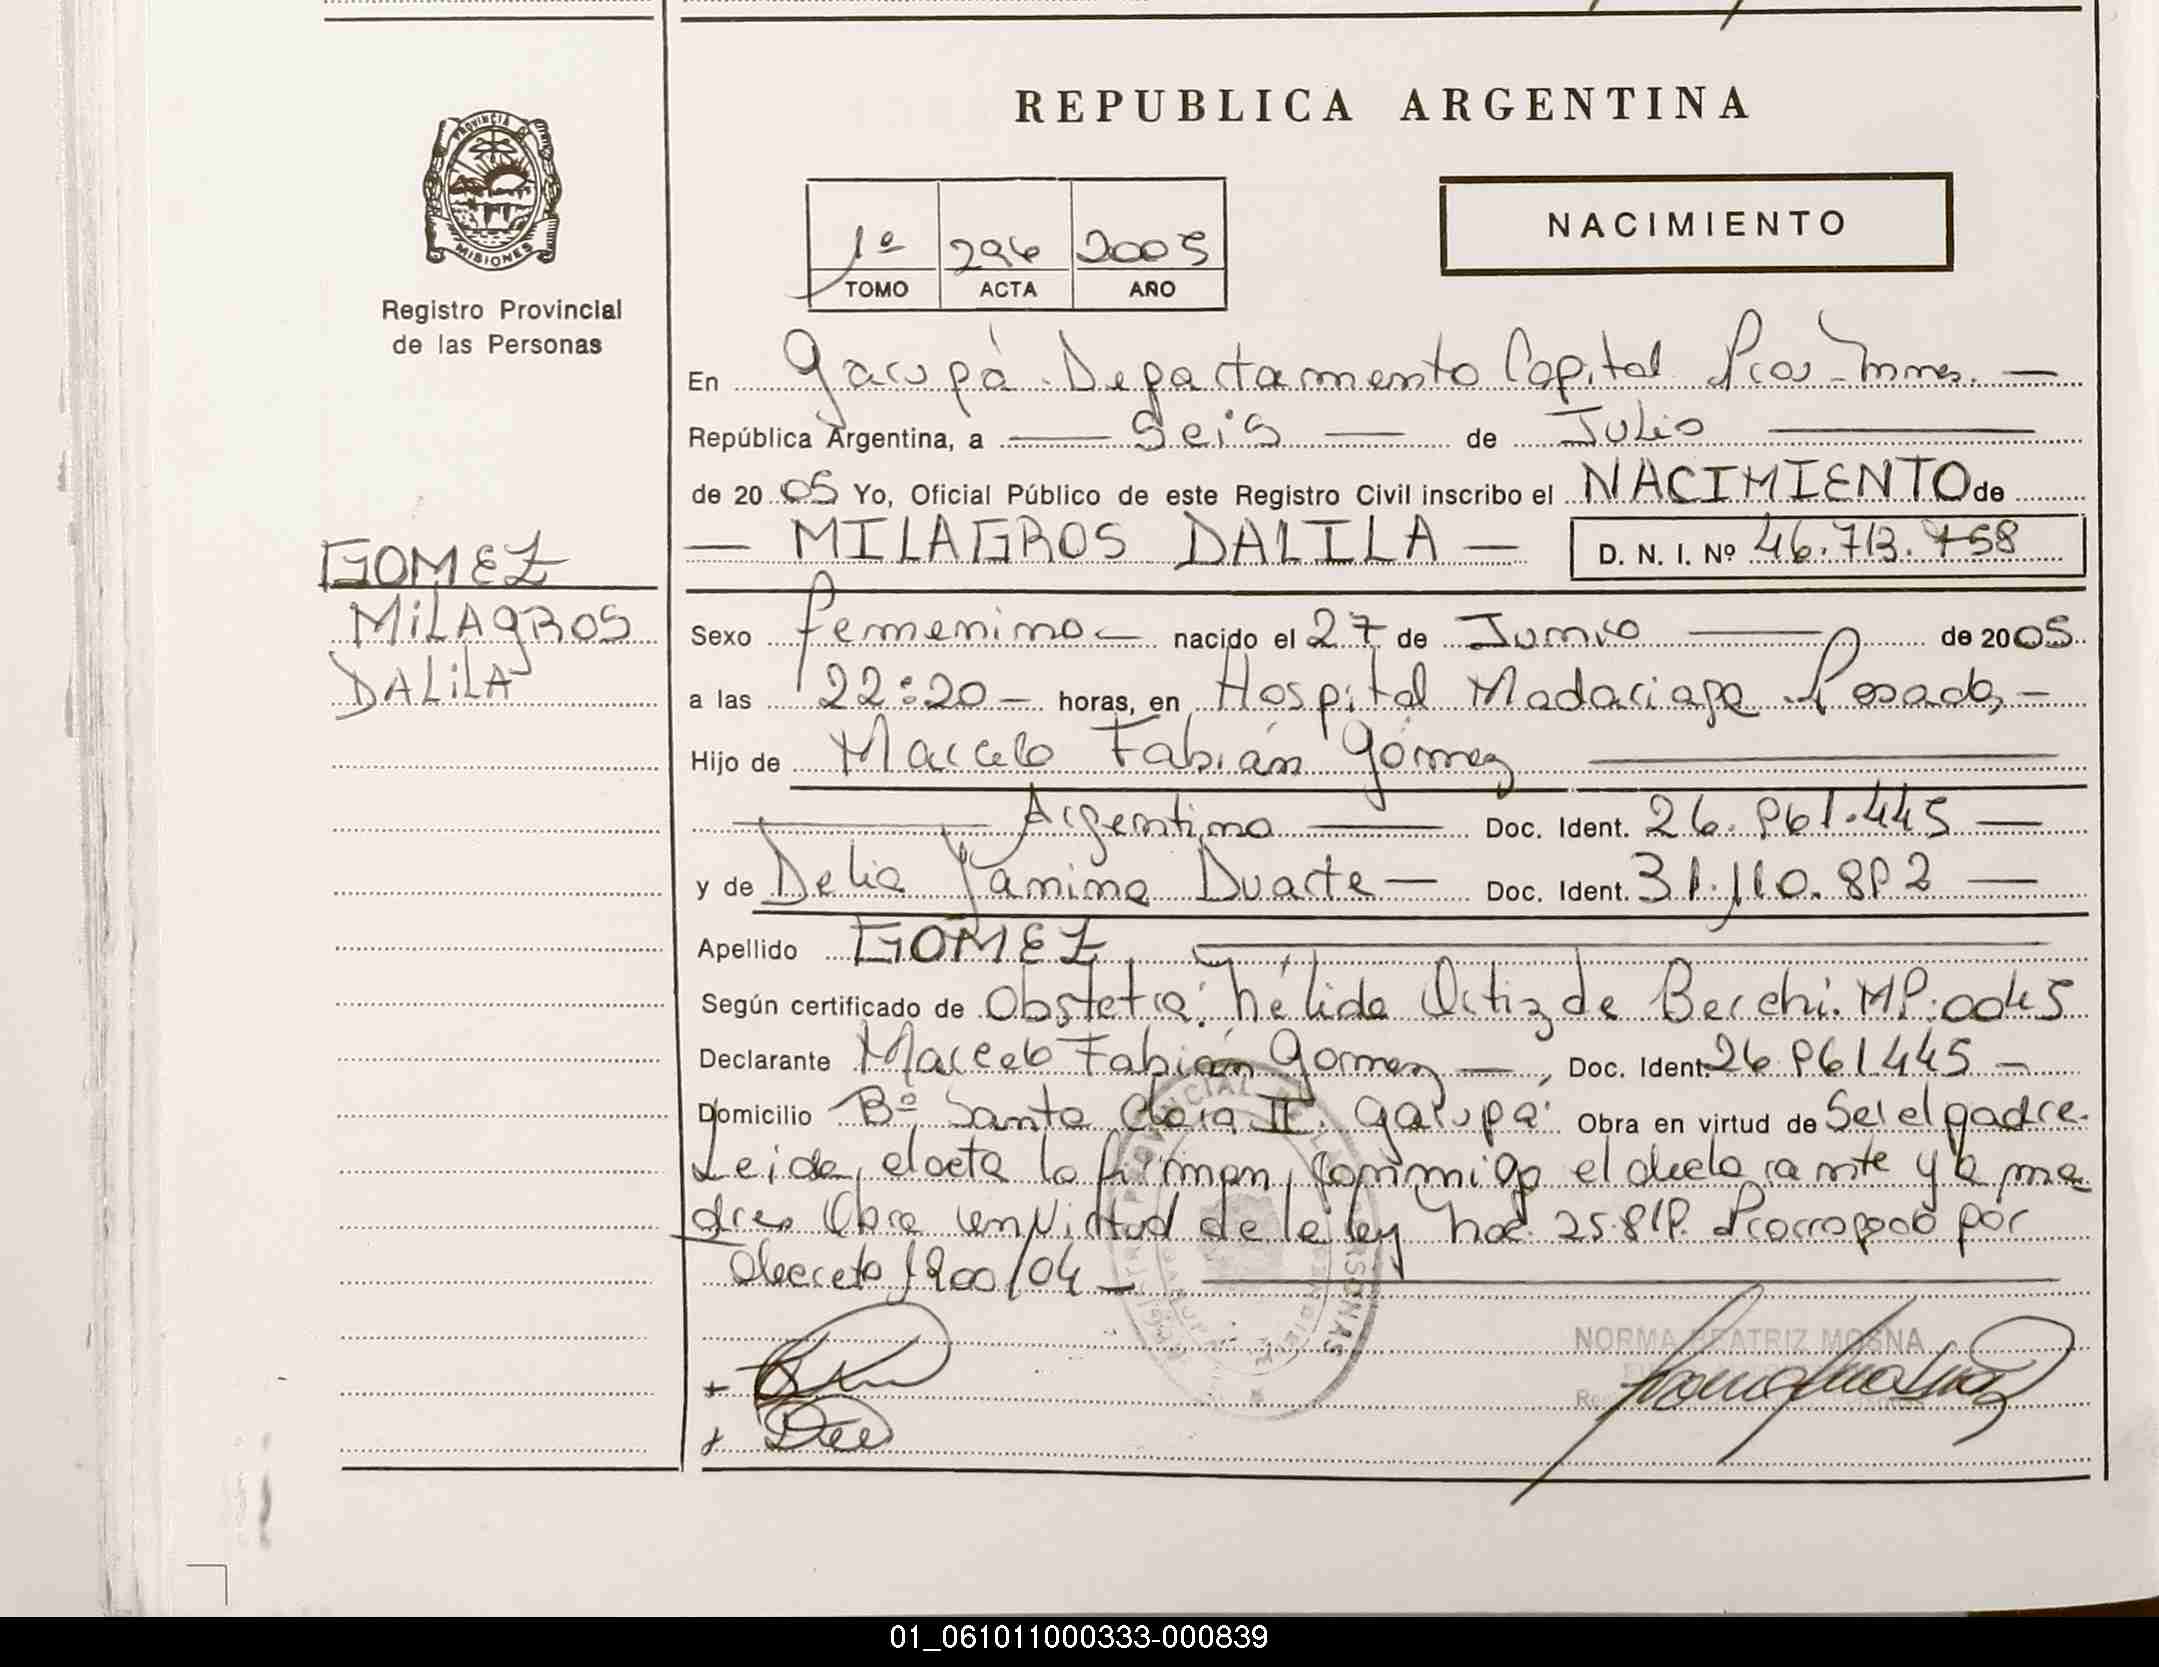 REPUBLICA ARGENTINA
PROVINCIA DE
MISIONES
Registro Provincial
de las Personas
NACIMIENTO
1º 296 2005
TOMO ACTA AÑO
En Garupá Departamento Capital
República Argentina, a seis de Julio
de 2005 Yo, Oficial Público de este Registro Civil inscribo el NACIMIENTO de
MILAGROS DALILA D. N. I. Nº 46.713.758
GOMEZ
MILAGROS
DALILA
Sexo femenino nacido el 27 de Junio de 2005
a las 22:20 horas, en Hospital Madariaga Posadas
Hijo de Marcelo Fabián Gómez
Argentino Doc. Ident. 26.961.445
y de Delia Yanina Duarte Doc. Ident. 31.110.892
Apellido GOMEZ
Según certificado de Obstetra: Nélida Ortiz de Berchi. MP: 0045
Declarante Marcelo Fabián Gomez, Doc. Ident. 26.961.445
Domicilio Bº Santa Clara II. Garupá Obra en virtud de Ser el padre.
Leida, el acta la firman, conmigo el declarante y la ma
dre. Obra en Virtud de la ley Nº 25.819. Prorrogado por
Decreto 1900/04
NORMA BEATRIZ MOSNA
01_061011000333-000839